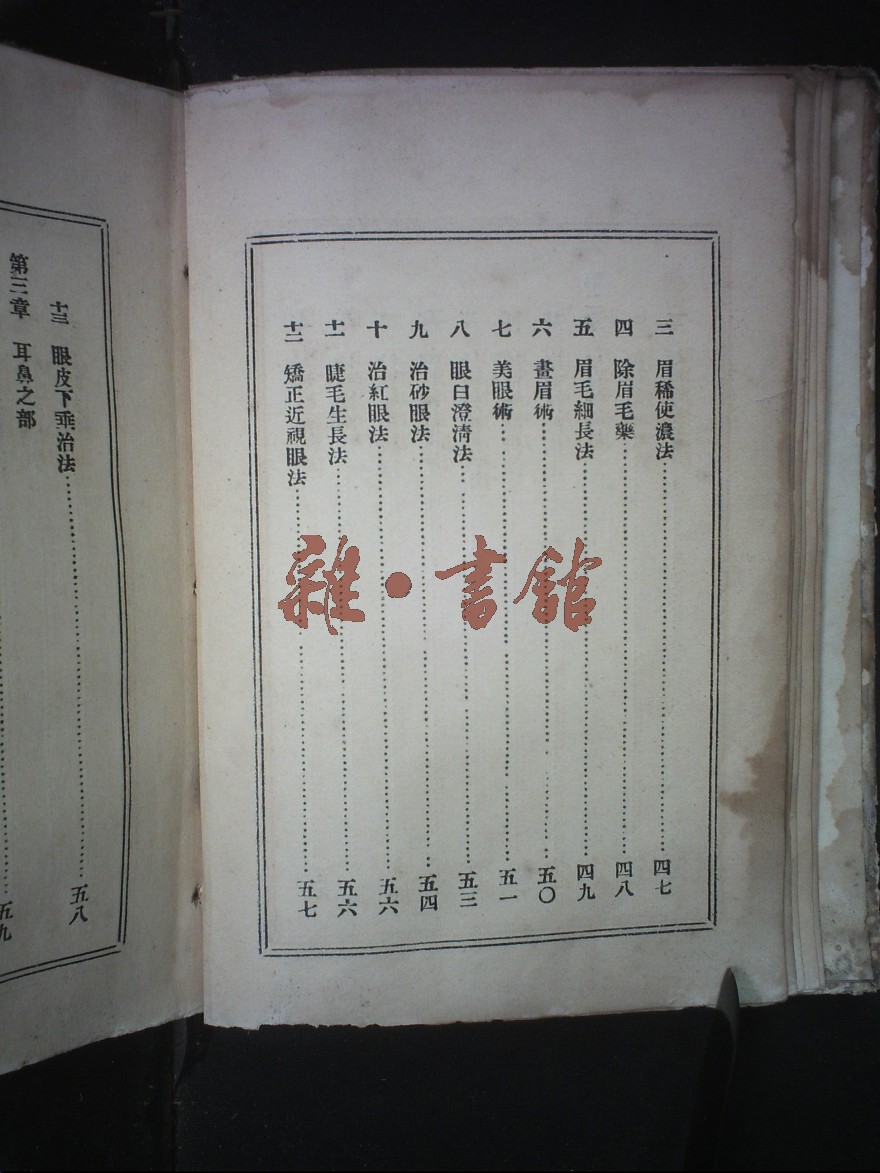 三 眉稀使濃法……四七
四 除眉毛藥……四八
五 眉毛細長法……四九
六 畫眉術……五〇
七 美眼術……五一
八 眼白澄淸法……五三
九 治砂眼法……五四
十 治紅眼法……五六
十一 睫毛生長法……五六
十二 矯正近視眼法……五七
十三 眼皮下垂治法……五八
第三章 耳鼻之部……五九
雜·書館